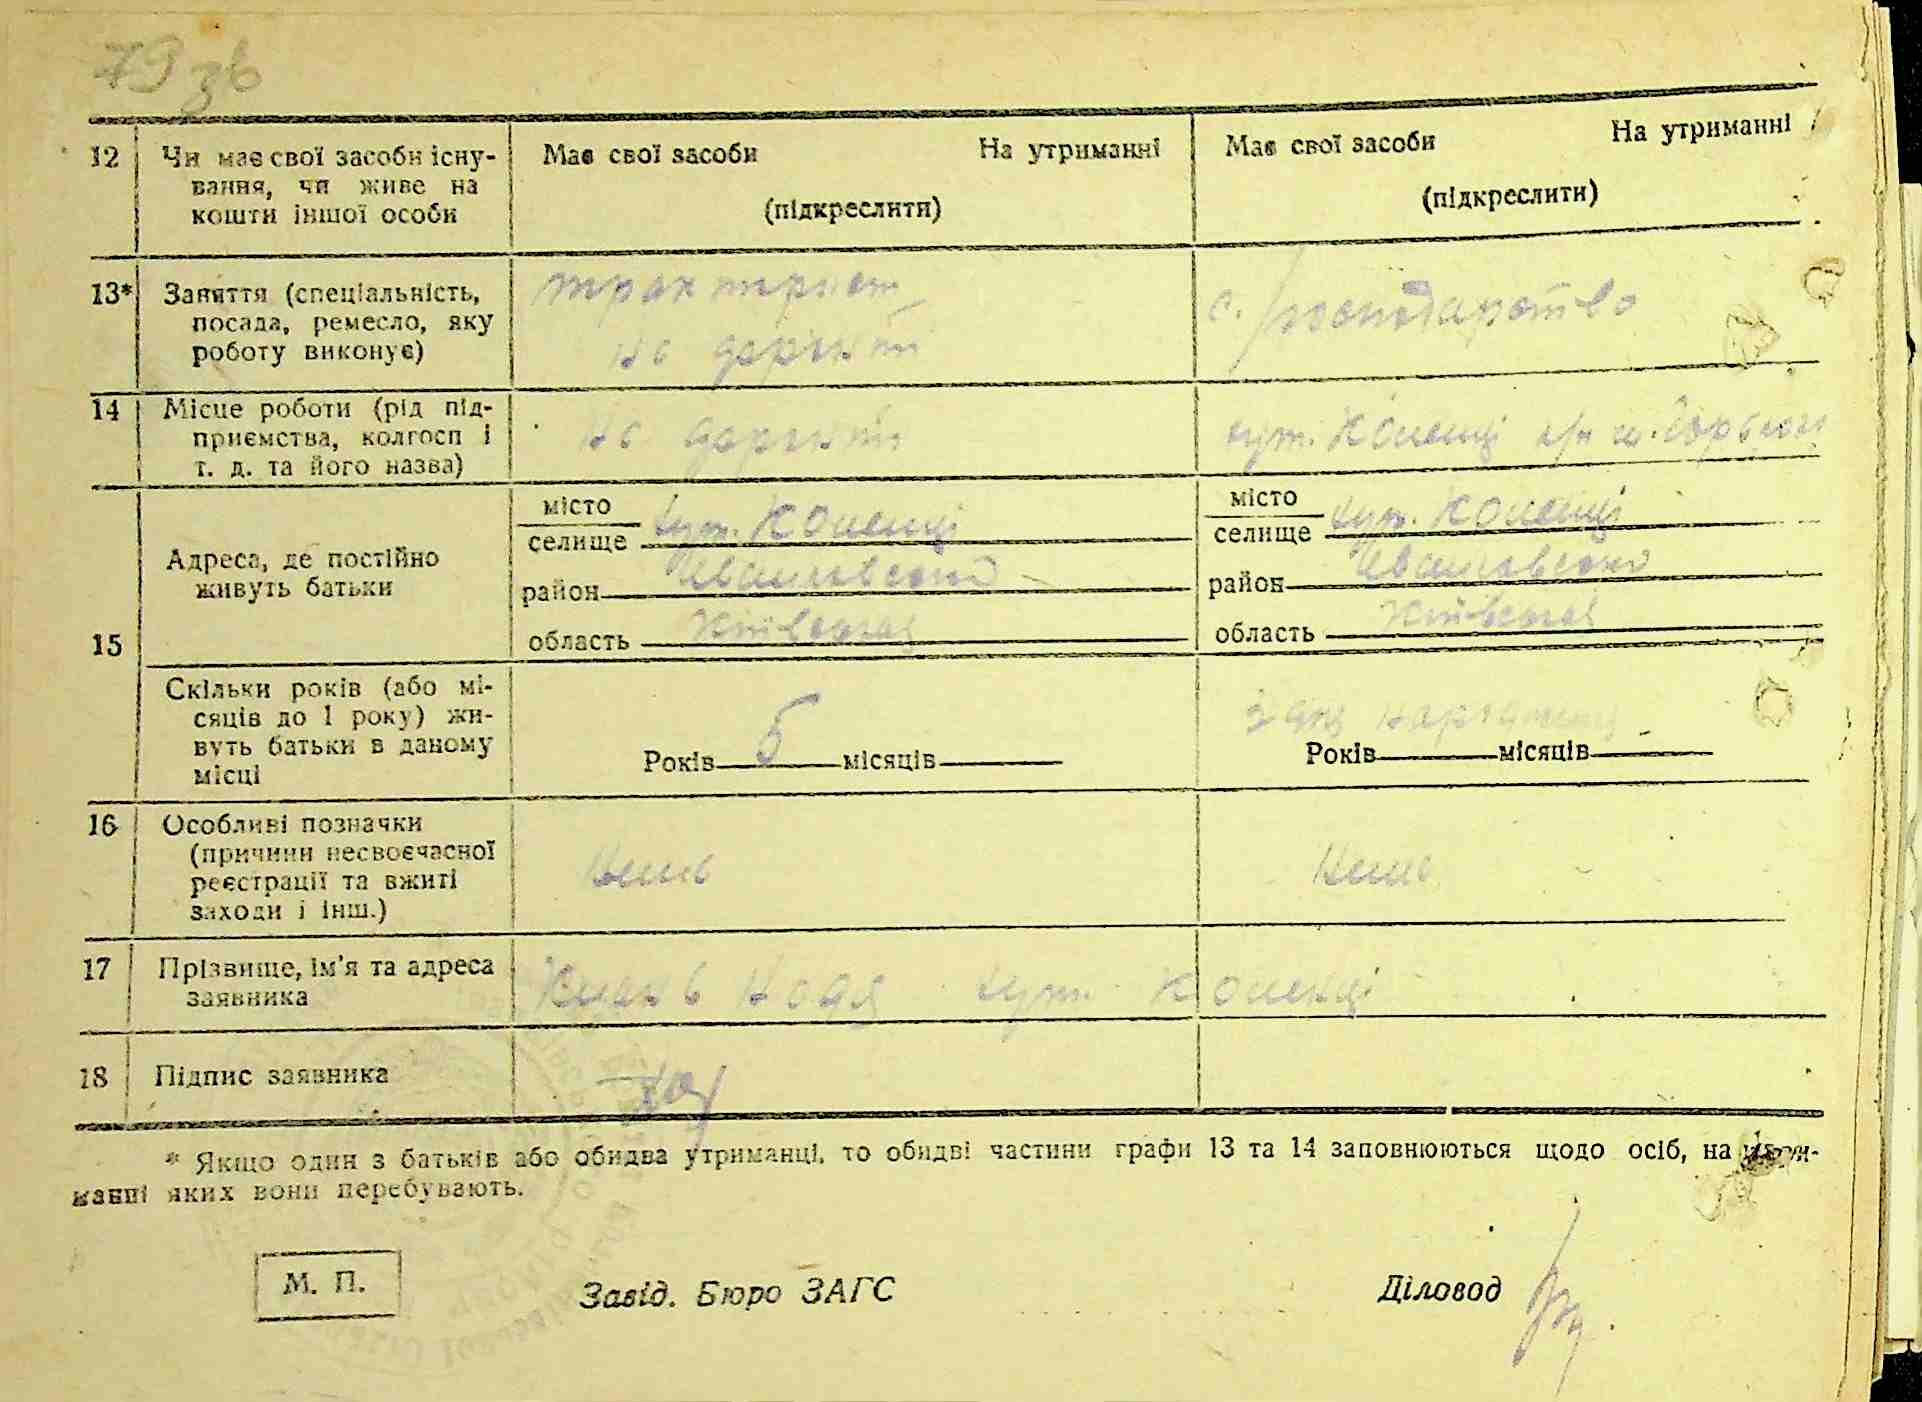 79 зв
12 Чи має свої засоби існу-
вання, чи живе на
кошти іншої особи
Має свої засоби На утриманні
(підкреслити)
Має свої засоби На утриманні
(підкреслити)
13* Заняття (спеціальність,
посада, ремесло, яку
роботу виконує)
тракторист
с. господарство
14 Місце роботи (рід під-
приємства, колгосп і
т. д. та його назва)
хут. Копенці
15
Адреса, де постійно
живуть батьки
місто
селище хут. Копенці
район
область Київская
місто
селище хут. Копенці
район
область Київская
Скільки років (або мі-
сяців до 1 року) жи-
вуть батьки в даному
місці
Років 5 місяців
Років місяців
16 Особливі позначки
(причини несвоєчасної
реєстрації та вжиті
заходи і інш.)
17 Прізвище, ім'я та адреса
заявника
Надя хут. Копенці
18 Підпис заявника
* Якщо один з батьків або обидва утриманці, то обидві частини графи 13 та 14 заповнюються щодо осіб, на утри-
манні яких вони перебувають.
М. П.
Завід. Бюро ЗАГС
Діловод